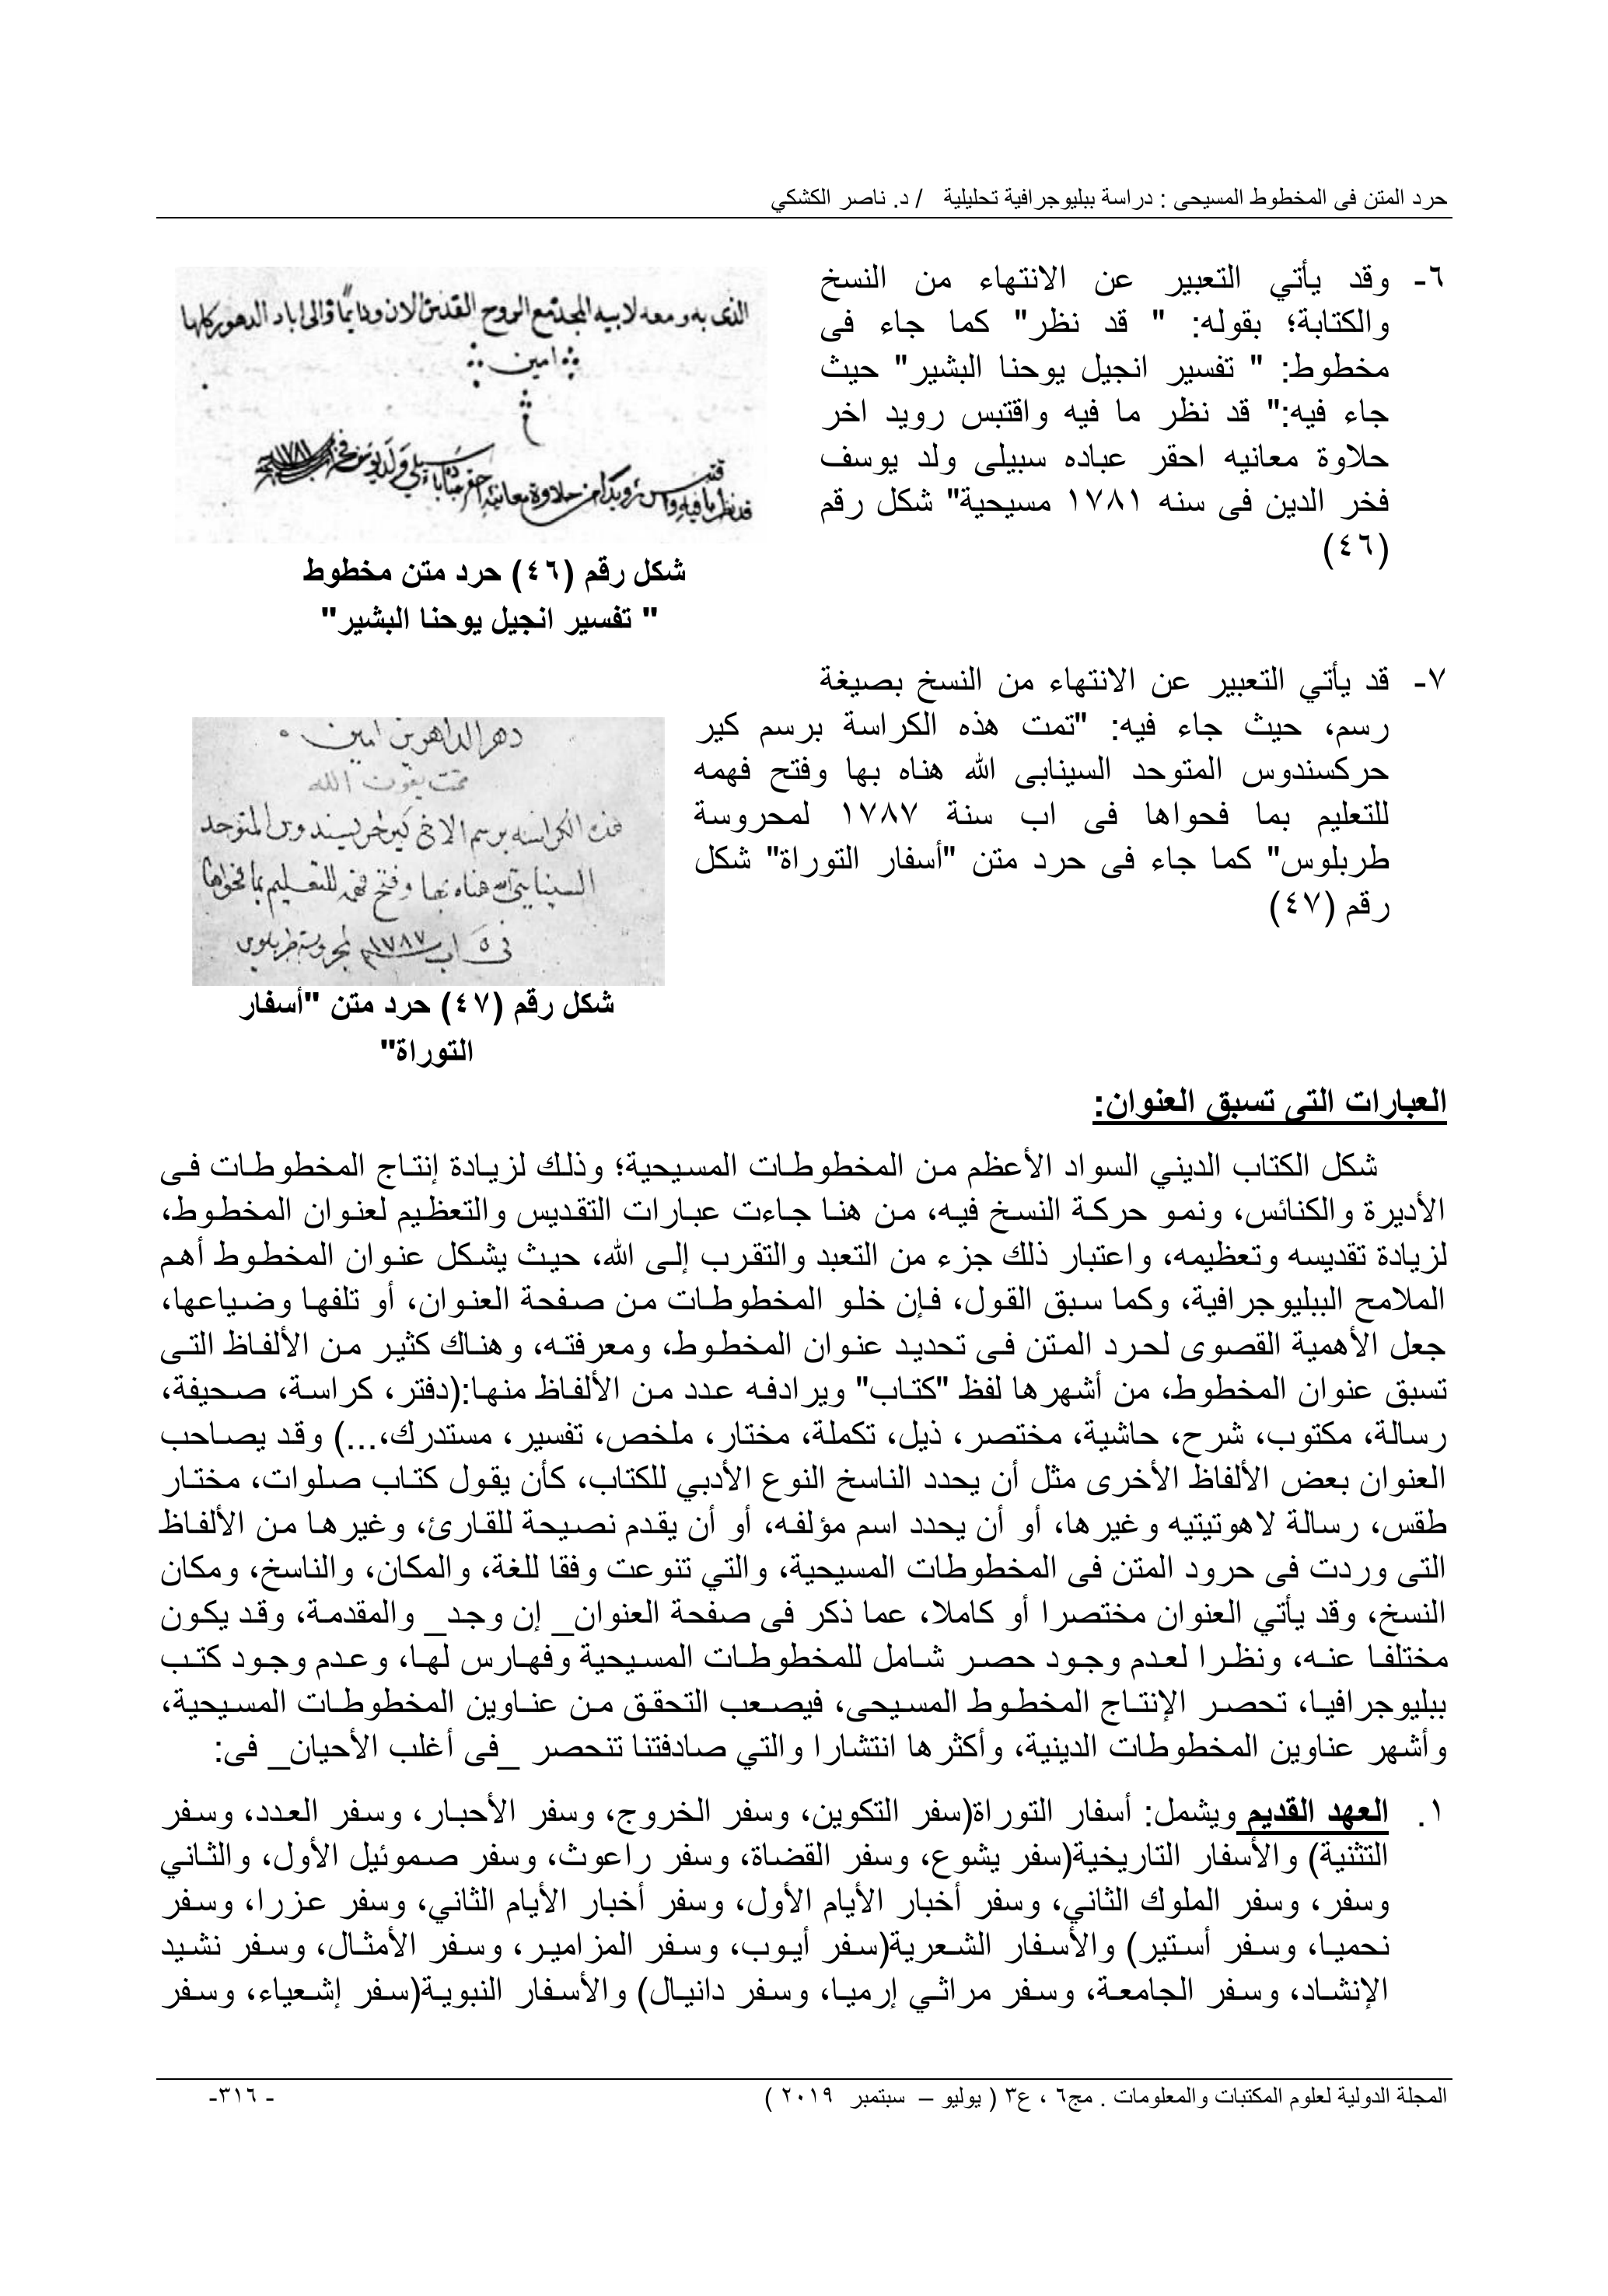 حرد المتن فى المخطوط المسيحى : دراسة ببليوجرافية تحليلية / د. ناصر الكشكي
٦- وقد يأتي التعبير عن الانتهاء من النسخ
والكتابة؛ بقوله: " قد نظر" كما جاء فى
مخطوط: " تفسير انجيل يوحنا البشير" حيث
جاء فيه:" قد نظر ما فيه واقتبس رويد اخر
حلاوة معانيه احقر عباده سبيلى ولد يوسف
فخر الدين فى سنه ١٧٨١ مسيحية" شكل رقم
(٤٦)
الذى به ومعه لابيه المجد مع الروح القدس الان ودايمًا والى اباد الدهور كلها
امين
شكل رقم (٤٦) حرد متن مخطوط
" تفسير انجيل يوحنا البشير"
٧- قد يأتي التعبير عن الانتهاء من النسخ بصيغة
رسم، حيث جاء فيه: "تمت هذه الكراسة برسم كير
حركسندوس المتوحد السينابى الله هناه بها وفتح فهمه
للتعليم بما فحواها فى اب سنة ١٧٨٧ لمحروسة
طربلوس" كما جاء فى حرد متن "أسفار التوراة" شكل
رقم (٤٧)
دهر الداهرين امين
تمت بعون الله
هذه الكراسه برسم الاخ كير المتوحد
الله هناه بها وفتح فهمه للتعليم بما فحواها
فى ٥ اب ١٧٨٧ لمحروسة طربلوس
شكل رقم (٤٧) حرد متن "أسفار
التوراة"
العبارات التى تسبق العنوان:
شكل الكتاب الديني السواد الأعظم من المخطوطات المسيحية؛ وذلك لزيادة إنتاج المخطوطات فى
الأديرة والكنائس، ونمو حركة النسخ فيه، من هنا جاءت عبارات التقديس والتعظيم لعنوان المخطوط،
لزيادة تقديسه وتعظيمه، واعتبار ذلك جزء من التعبد والتقرب إلى الله، حيث يشكل عنوان المخطوط أهم
الملامح الببليوجرافية، وكما سبق القول، فإن خلو المخطوطات من صفحة العنوان، أو تلفها وضياعها،
جعل الأهمية القصوى لحرد المتن فى تحديد عنوان المخطوط، ومعرفته، وهناك كثير من الألفاظ التى
تسبق عنوان المخطوط، من أشهرها لفظ "كتاب" ويرادفه عدد من الألفاظ منها:(دفتر، كراسة، صحيفة،
رسالة، مكتوب، شرح، حاشية، مختصر، ذيل، تكملة، مختار، ملخص، تفسير، مستدرك،...) وقد يصاحب
العنوان بعض الألفاظ الأخرى مثل أن يحدد الناسخ النوع الأدبي للكتاب، كأن يقول كتاب صلوات، مختار
طقس، رسالة لاهوتيتيه وغيرها، أو أن يحدد اسم مؤلفه، أو أن يقدم نصيحة للقارئ، وغيرها من الألفاظ
التى وردت فى حرود المتن فى المخطوطات المسيحية، والتي تنوعت وفقا للغة، والمكان، والناسخ، ومكان
النسخ، وقد يأتي العنوان مختصرا أو كاملا، عما ذكر فى صفحة العنوان_ إن وجد_ والمقدمة، وقد يكون
مختلفا عنه، ونظرا لعدم وجود حصر شامل للمخطوطات المسيحية وفهارس لها، وعدم وجود كتب
ببليوجرافيا، تحصر الإنتاج المخطوط المسيحى، فيصعب التحقق من عناوين المخطوطات المسيحية،
وأشهر عناوين المخطوطات الدينية، وأكثرها انتشارا والتي صادفتنا تنحصر _فى أغلب الأحيان_ فى:
١. العهد القديم ويشمل: أسفار التوراة(سفر التكوين، وسفر الخروج، وسفر الأحبار، وسفر العدد، وسفر
التثنية) والأسفار التاريخية(سفر يشوع، وسفر القضاة، وسفر راعوث، وسفر صموئيل الأول، والثاني
وسفر، وسفر الملوك الثاني، وسفر أخبار الأيام الأول، وسفر أخبار الأيام الثاني، وسفر عزرا، وسفر
نحميا، وسفر أستير) والأسفار الشعرية(سفر أيوب، وسفر المزامير، وسفر الأمثال، وسفر نشيد
الإنشاد، وسفر الجامعة، وسفر مراثي إرميا، وسفر دانيال) والأسفار النبوية(سفر إشعياء، وسفر
المجلة الدولية لعلوم المكتبات والمعلومات . مج٦ ، ع٣ ( يوليو – سبتمبر ٢٠١٩ )
- ٣١٦-